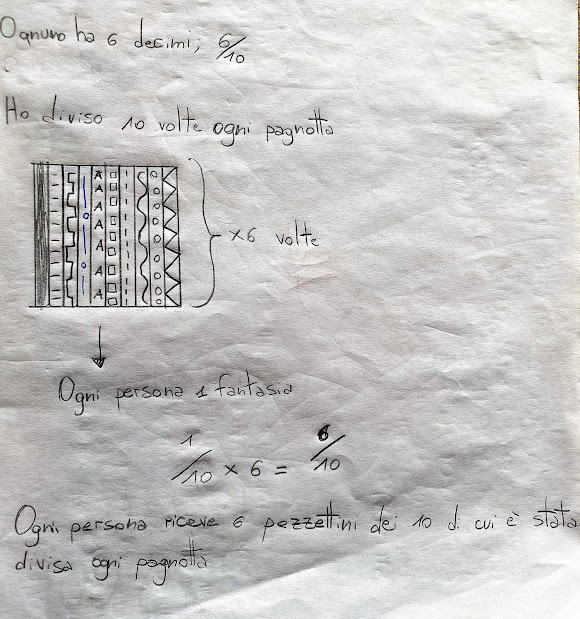 Ognuno ha 6 decimi; 6/10
Ho diviso 10 volte ogni pagnotta
A
A
A
A
A
A
A
x6 volte
Ogni persona 1 fantasia
1/10 x 6 = 6/10
Ogni persona riceve 6 pezzettini dei 10 di cui è stata
divisa ogni pagnotta